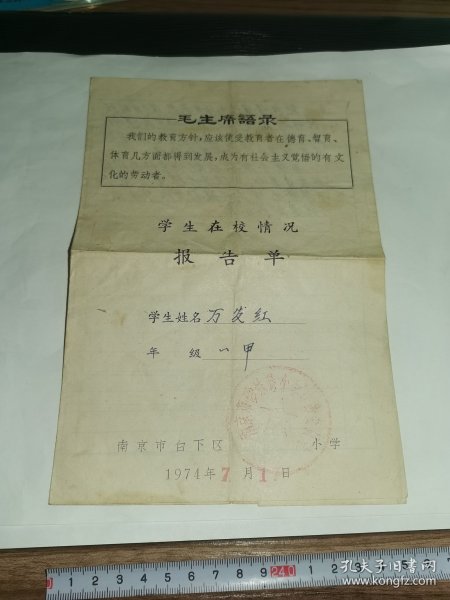 毛主席語录
我们的教育方针，应该使受教育者在德育、智育、
体育几方面都得到发展，成为有社会主义觉悟的有文
化的劳动者。
学生在校情况
报告单
学生姓名 万发红
年 级 一甲
南京市白下区 小学
1974年7月1日
1 2 3 4 5 6 7 8 9 240 1 2 3 4 5 6 7
孔夫子旧书网
www.kongfz.com